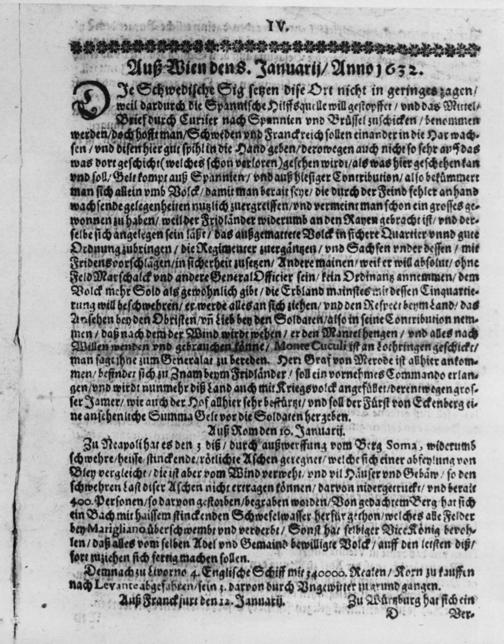 IV.
Auß Wien den 8. Januarij/ Anno 1632.
DIe Schwedische Sig setzen dise Ort nicht in geringes zagen/
weil dardurch die Spannische Hilffsquelle will gestopffet/ vnd das Mittel/
Brief durch Curiser nach Spannien vnd Brüssel zuschicken/ benommen
werden/ doch hofft man/ Schweden vnd Franckreich sollen einander in die Har wach-
sen/ vnd disen hier gut spihl in die Hand geben/ derowegen auch nicht so sehr auff das
was dort geschicht (welches schon verloren) gesehen wirdt/ als was hier geschehen kan
vnd soll/ Gelt kompt auß Spannien/ vnd auß hiesiger Contribution/ also bekümmert
man sich allein vmb Volck/ damit man berait seye/ die durch der Feind fehler anhand
wachsende gelegenheiten nutzlich zuergreiffen/ vnd vermeint man schon ein grosses ge-
wonnen zu haben/ weil der Fridländer widerumb an den Rayen gebracht ist/ vnd der-
selbe sich angelegen sein läßt/ das außgemattete Volck in sichere Quartier vnnd gute
Ordnung zubringen/ die Regimenter zuergäntzen/ vnd Sachsen vnder dessen/ mit
Fridensvorschlägen/ in sicherheit zusetzen/ Andere mainen/ weil er will absolut/ ohne
Feld Marschalck vnd andere General Officier sein/ kein Ordinanz annemmen/ dem
Volck mehr Sold als gewöhnlich gibt/ die Erbland mainstes mit dessen Einquartie-
rung will beschwehren/ er werde alles an sich ziehen/ vnd den Respect beym Land/ das
Ansehen bey den Obristen/ vn Lieb bey den Soldaten/ also in seine Contribution nem-
men/ daß nach dem der Wind werde wehen/ er den Mantel hengen/ vnd alles nach
Willen wenden vnd gebrauchen könne/ Monte Cuculi ist an Lothringen geschickt/
man sagt ihne zum Generalat zu bereden. Herr Graf von Merode ist allhier ankom-
men/ befindet sich zu Znam beym Fridländer/ soll ein vornehmes Commando erlan-
gen/ vnd wirdt nunmehr diß Land auch mit Kriegsvolck angefüllet/ derentwegen gros-
ser Jamer/ wie auch der Hof allhier sehr bestürtzt/ vnd soll der Fürst von Eckenberg ei-
ne ansehenliche Summa Gelt vor die Soldaten hergeben.
Auß Rom den 10. Januarij.
Zu Neapoli hat es den 3 diß/ durch außwerffung vom Berg Soma/ widerumb
schwehre/ heisse/ stinckende/ rötlichte Aschen geregnet/ welche sich einer abfeylung von
Bley vergleicht/ die ist aber vom Wind verweht/ vnd vil Häuser vnd Gebäw/ so den
schwehren Last diser Aschen nicht ertragen können/ darvon nidergetruckt/ vnd berait
400. Personen/ so darvon gestorben/ begraben worden/ Von gedachtem Berg hat sich
ein Bach mit haissem stinckenden Schwefelwasser herfür gethon/ welches alle Felder
bey Marigliano überschwembt vnd verderbt/ Sonst hat selbiger Vice König bevoh-
len/ daß alles vom selben Adel vnd Gemaind bewilligte Volck/ auff den letsten diß/
fort zuziehen sich fertig machen sollen.
Demnach zu Livorno 4. Englische Schiff mit 340000. Realen/ Korn zu kauffen
nach Levante abgefahren/ sein 3. darvon durch Vngewitter zu grund gangen.
Auß Franckfurt den 12. Januarij. Zu Würtzburg hat sich ein
D Ver-